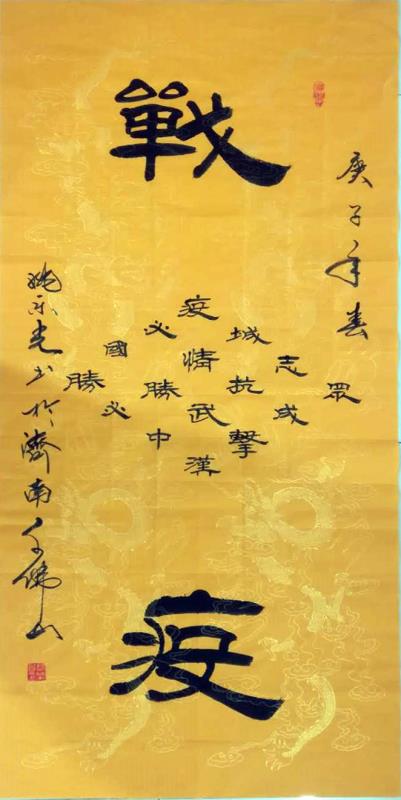 戰
疫
庚子年春
眾
志成
城抗擊
疫情武漢
必勝中
國必
勝
姚乐光书於濟南千佛山